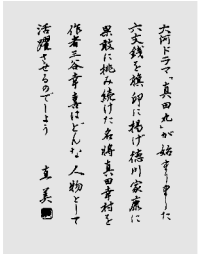 大河ドラマ「真田丸」が始まりました
六文銭を旗印に掲げ徳川家康に
果敢に挑み続けた名将真田幸村を
作者三谷幸喜はどんな人物として
活躍させるのでしょう
真美